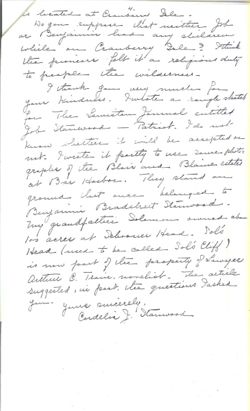 4.
is located at Cranberry Isle.
Do you suppose that neither Job
or Benjamin had any children
while on Cranberry Isle? I think
the pioneers felt it a religious duty
to people the wilderness.
I thank you very much for
your kindness. I wrote a rough sketch
for The Lewiston Journal entitled
Job Stanwood – Patriot. I do not
know whether it will be accepted or
not. I wrote it partly to use some photo-
graphs of the Blair and Blaine estates
at Bar Harbor. They stand on
ground that once belonged to
Benjamin Bradstreet Stanwood.
My grandfather Solomon owned about
100 acres at Schooner Head. Sol's
Head (used to be called Sol's Cliff)
is now part of the property of Lawyer
Arthur E. Train, novelist. The article
suggested, in part, the questions I asked
you. Yours sincerely,
Cordelia J. Stanwood